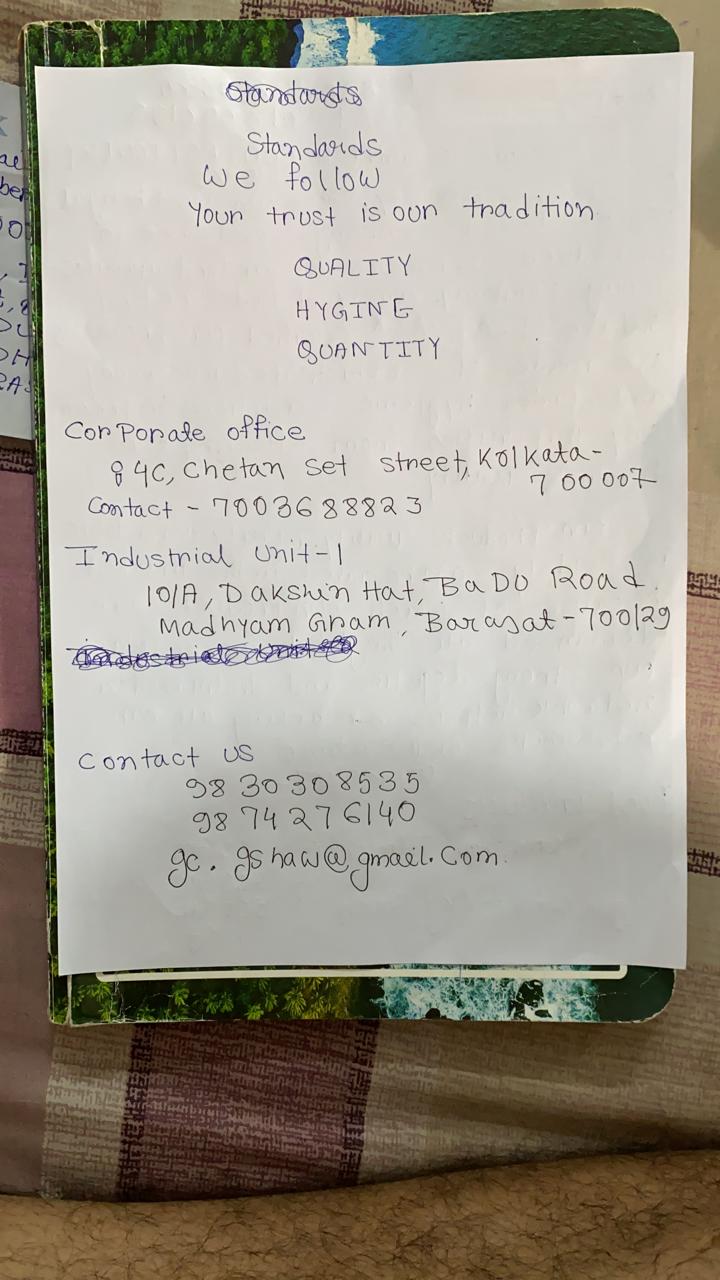 Standards
Standards
We follow
Your trust is our tradition
QUALITY
HYGINE
QUANTITY
Corporate office
84C, Chetan Set street, Kolkata-
700007
Contact - 7003688823
Industrial Unit-1
10/A, Dakshin Hat, BaDu Road.
Madhyam Gram, Barasat-700129
Industrial Unit
Contact us
98 30308535
98 74276140
gc.gshaw@gmail.com.